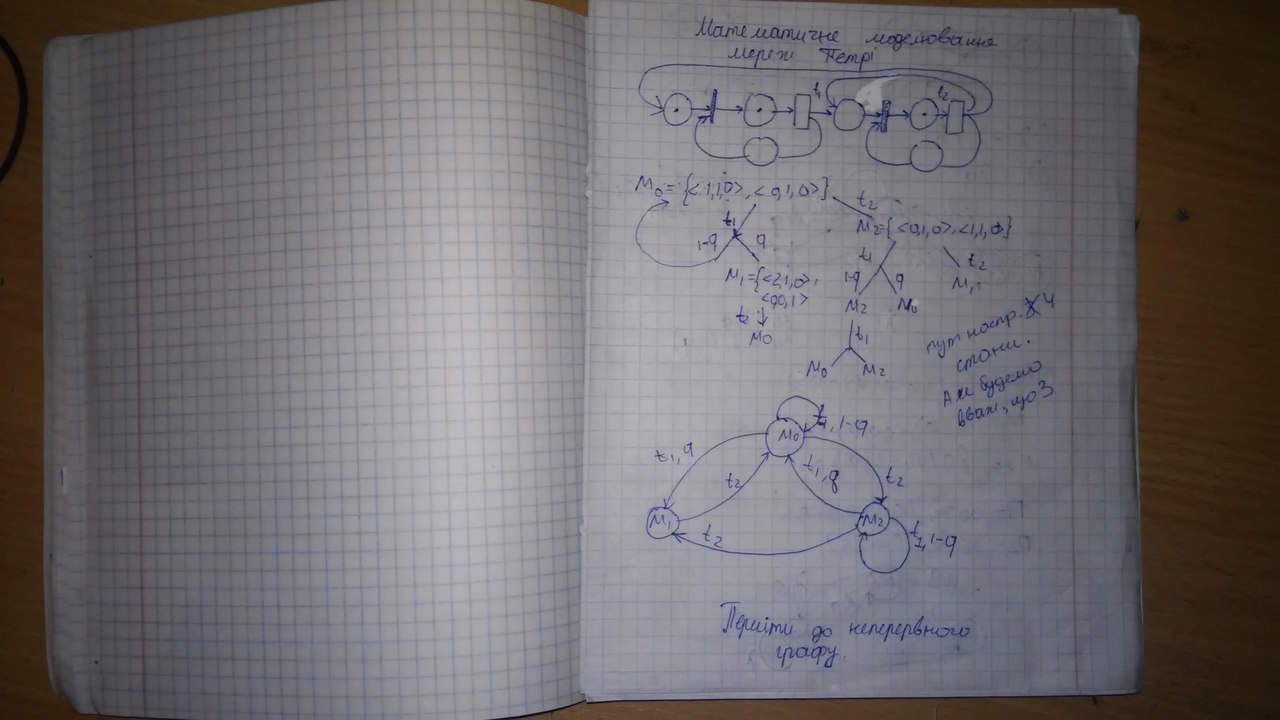 Математичне моделювання
мереж Петрі
t₁
t₂
M₀ = {<1,1,0>, <0,1,0>}
t₂
t₁
M₂={<0,1,0>,<1,1,0>}
1-q
q
t₁
t₂
M₁={<2,1,0>,
<0,0,1>
1-q
q
M₁
M₂
M₀
t₂
M₀
t₁
M₀
M₂
тут наспр. 4
стани.
Але будемо
вваж, що 3
t₁, 1-q
M₀
t₁, q
t₂
t₁, q
t₂
M₁
M₂
t₂
t₁, 1-q
Перейти до неперервного
графу.